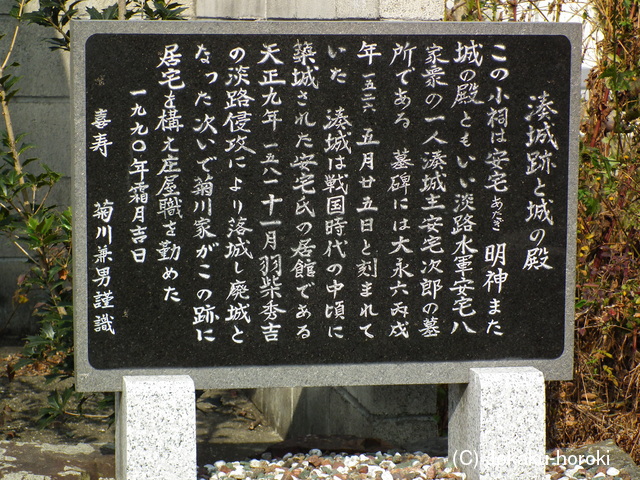 湊城跡と城の殿
この小祠は安宅あたぎ明神また
城の殿ともいい淡路水軍安宅八
家衆の一人湊城主安宅次郎の墓
所である 墓碑には大永六丙戌
年一五二六五月廿五日と刻まれて
いた 湊城は戦国時代の中頃に
築城された安宅氏の居館である
天正九年一五八一十一月羽柴秀吉
の淡路侵攻により落城し廃城と
なった次いで菊川家がこの跡に
居宅を構え庄屋職を勤めた
一九九〇年霜月吉日
喜寿 菊川兼男謹識